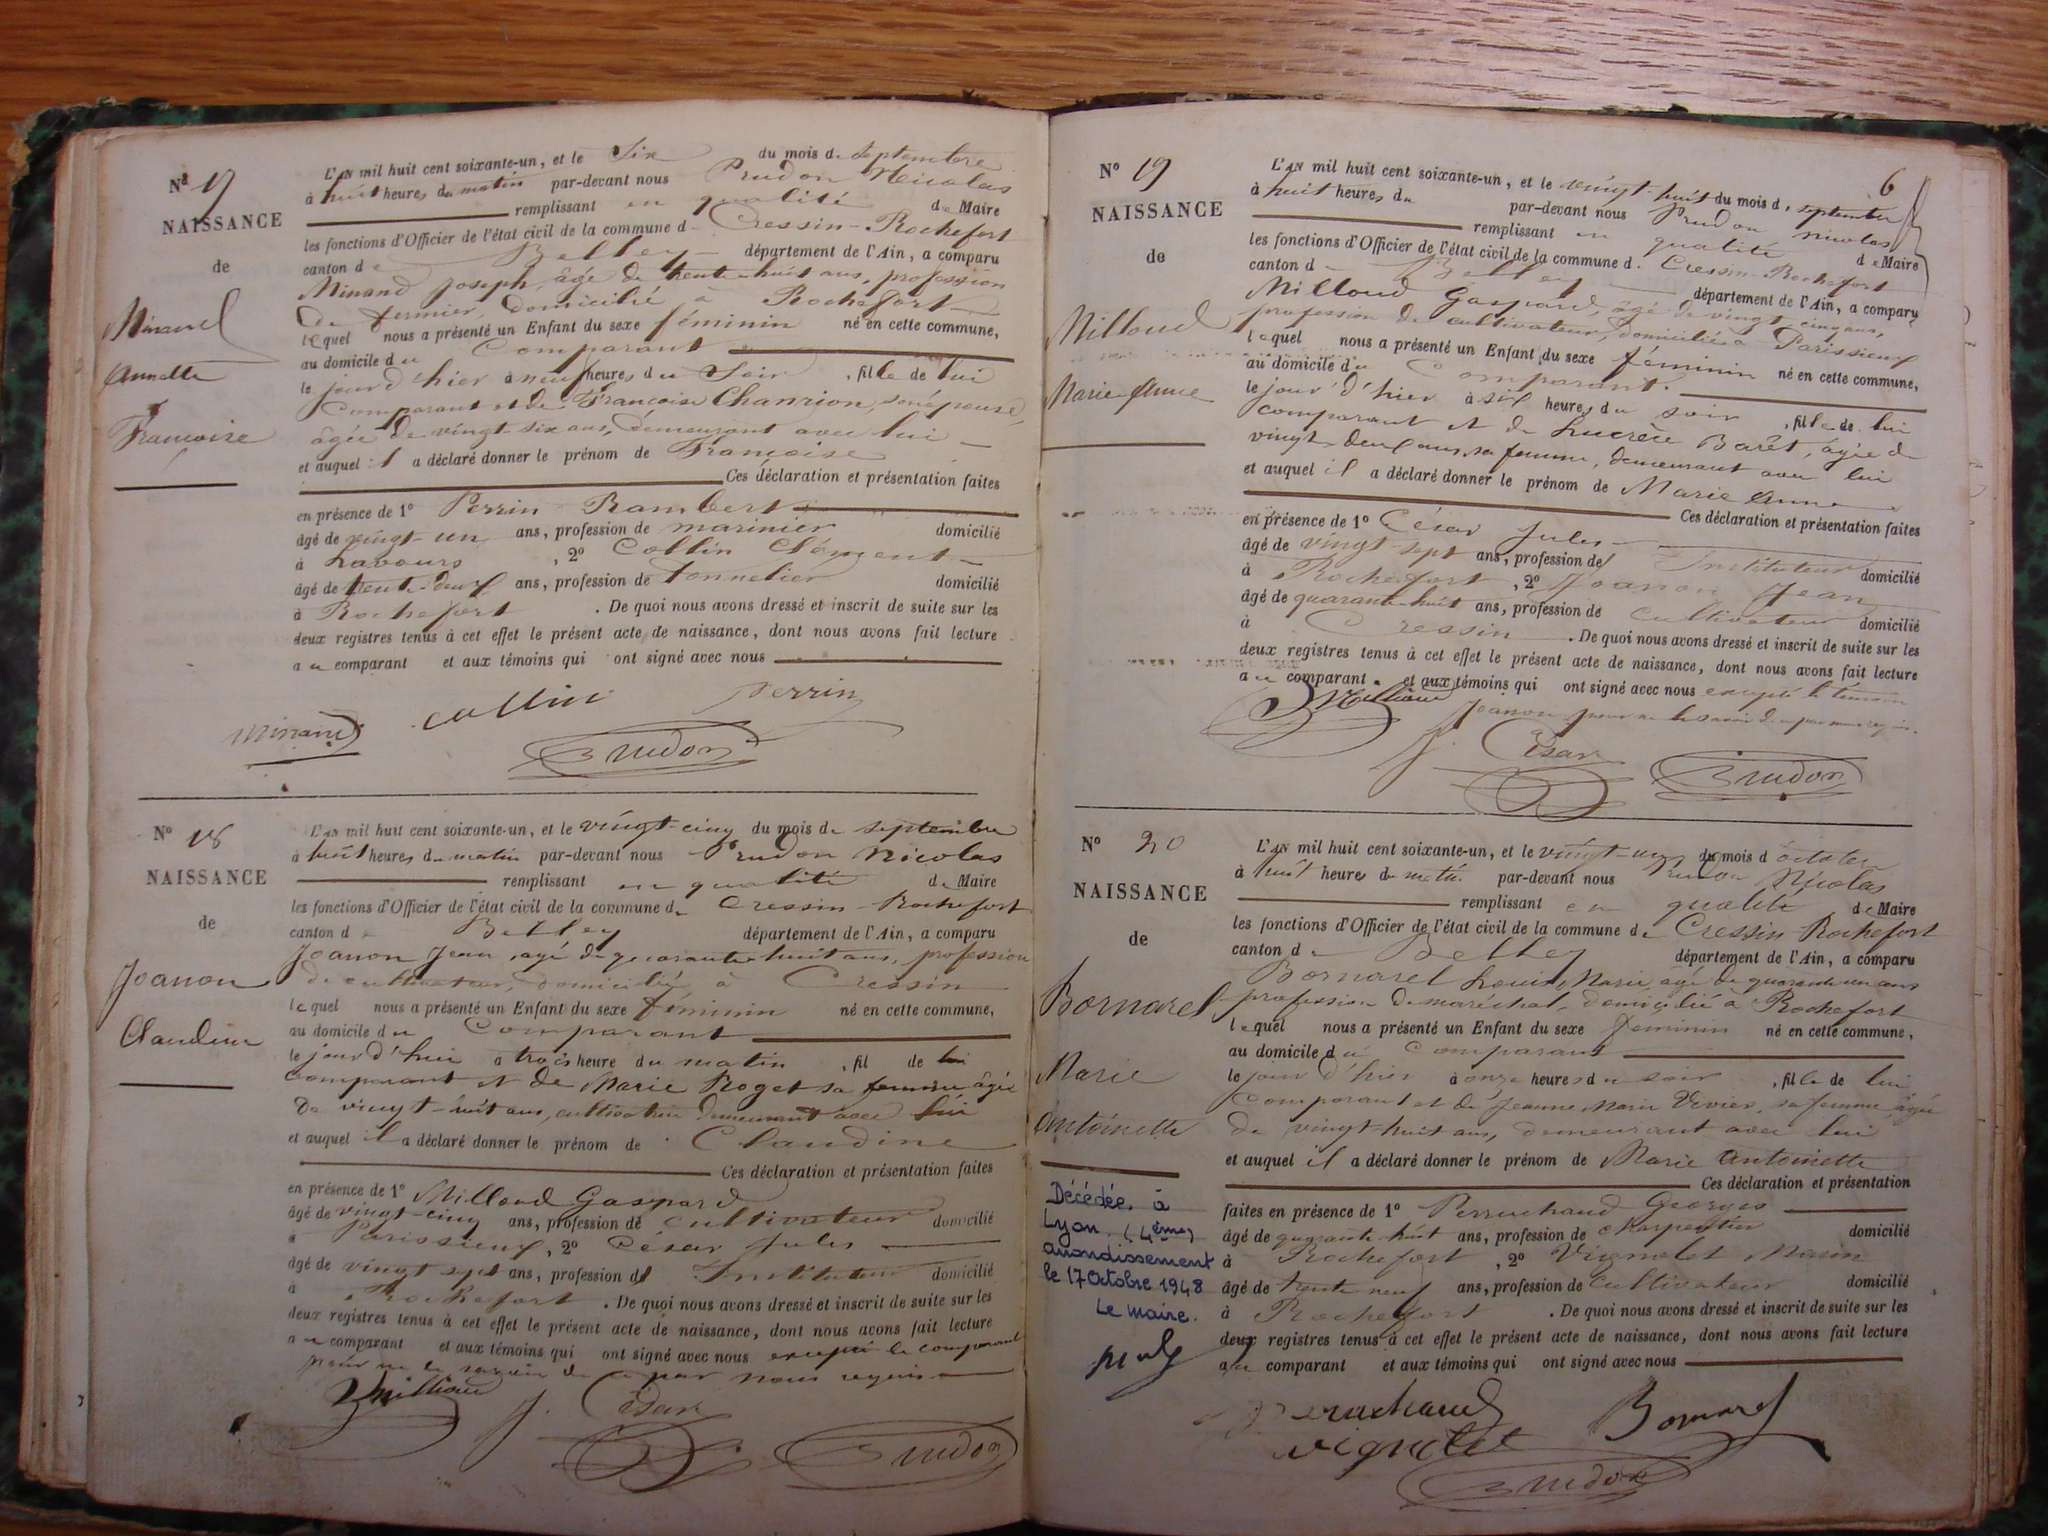 Nº 17
NAISSANCE
de
Minand
Annette
Françoise
L'AN mil huit cent soixante-un, et le Six du mois de Septembre
à huit heures du matin par-devant nous Prudon Nicolas
remplissant en qualité de Maire
les fonctions d'Officier de l'état civil de la commune de Cressin-Rochefort
canton de Belley département de l'Ain, a comparu
Minand Joseph, âgé de trente-huit ans, profession
de fermier, domicilié à Rochefort
lequel nous a présenté un Enfant du sexe féminin né en cette commune,
au domicile du Comparant
le jour d'hier à neuf heures du Soir, fille de lui
Comparant et de Françoise Chanrion, son épouse,
âgée de vingt-six ans, demeurant avec lui
et auquel il a déclaré donner le prénom de Françoise
Ces déclaration et présentation faites
en présence de 1º Perrin Rambert
âgé de vingt un ans, profession de marinier domicilié
à Lavours, 2º Collin Clément
âgé de trente-deux ans, profession de tonnelier domicilié
à Rochefort. De quoi nous avons dressé et inscrit de suite sur les
deux registres tenus à cet effet le présent acte de naissance, dont nous avons fait lecture
au comparant et aux témoins qui ont signé avec nous
Minand Collin Perrin
Prudon
Nº 18
NAISSANCE
de
Joanon
Claudine
L'AN mil huit cent soixante-un, et le vingt-cinq du mois de septembre
à huit heures du matin par-devant nous Prudon Nicolas
remplissant en qualité de Maire
les fonctions d'Officier de l'état civil de la commune de Cressin-Rochefort
canton de Belley département de l'Ain, a comparu
Joanon Jean, âgé de quarante-huit ans, profession
de cultivateur, domicilié à Cressin
lequel nous a présenté un Enfant du sexe féminin né en cette commune,
au domicile du Comparant
le jour d'hui à trois heure du matin, fil de lui
comparant et de Marie Roget sa femme âgée
de vingt-huit ans, demeurant avec lui
et auquel il a déclaré donner le prénom de Claudine
Ces déclaration et présentation faites
en présence de 1º Milloud Gaspard
âgé de vingt-cinq ans, profession de cultivateur domicilié
à Parissieux, 2º César Jules
âgé de vingt sept ans, profession d' Instituteur domicilié
à Rochefort. De quoi nous avons dressé et inscrit de suite sur les
deux registres tenus à cet effet le présent acte de naissance, dont nous avons fait lecture
au comparant et aux témoins qui ont signé avec nous excepté le comparant
pour ne le savoir de ce par nous requis
Milloud J. César
Prudon
6
Nº 19
NAISSANCE
de
Milloud
Marie Anne
L'AN mil huit cent soixante-un, et le vingt-huit du mois de septembre
à huit heures du par-devant nous Prudon Nicolas
remplissant en qualité de Maire
les fonctions d'Officier de l'état civil de la commune de Cressin-Rochefort
canton de Belley département de l'Ain, a comparu
Milloud Gaspard, âgé de vingt-cinq ans,
profession de cultivateur, domicilié à Parissieux
lequel nous a présenté un Enfant du sexe féminin né en cette commune,
au domicile du Comparant.
le jour d'hier à six heures du soir, fille de lui
comparant et de Lucrèce Barêt, âgée de
vingt-deux ans, sa femme, demeurant avec lui
et auquel il a déclaré donner le prénom de Marie Anne
Ces déclaration et présentation faites
en présence de 1º César Jules
âgé de vingt-sept ans, profession d' Instituteur domicilié
à Rochefort, 2º Joanon Jean
âgé de quarante-huit ans, profession de cultivateur domicilié
à Cressin. De quoi nous avons dressé et inscrit de suite sur les
deux registres tenus à cet effet le présent acte de naissance, dont nous avons fait lecture
au comparant et aux témoins qui ont signé avec nous excepté le témoin
Joanon pour ne le savoir de ce par nous requis.
Milloud
J. César Prudon
Nº 20
NAISSANCE
de
Bornarel
Marie
Antoinette
L'AN mil huit cent soixante-un, et le vingt-un du mois d'octobre
à huit heures du matin par-devant nous Prudon Nicolas
remplissant en qualité de Maire
les fonctions d'Officier de l'état civil de la commune de Cressin Rochefort
canton de Belley département de l'Ain, a comparu
Bornarel Louis Marie, âgé de quarante un ans
profession de maréchal, domicilié à Rochefort
lequel nous a présenté un Enfant du sexe féminin né en cette commune,
au domicile du Comparant
le jour d'hier à onze heures du soir, fille de lui
Comparant et de Jeanne Marie Vivier, sa femme âgée
de vingt-huit ans, demeurant avec lui
et auquel il a déclaré donner le prénom de Marie Antoinette
Ces déclaration et présentation
faites en présence de 1º Perruchaud Georges
âgé de quarante huit ans, profession de charpentier domicilié
à Rochefort, 2º Vignolet
âgé de trente neuf ans, profession de cultivateur domicilié
à Rochefort. De quoi nous avons dressé et inscrit de suite sur les
deux registres tenus à cet effet le présent acte de naissance, dont nous avons fait lecture
au comparant et aux témoins qui ont signé avec nous
Décédée à
Lyon (4ème)
arrondissement
le 17 Octobre 1948
Le maire.
Perruchaud Bornarel
Vignolet
Prudon